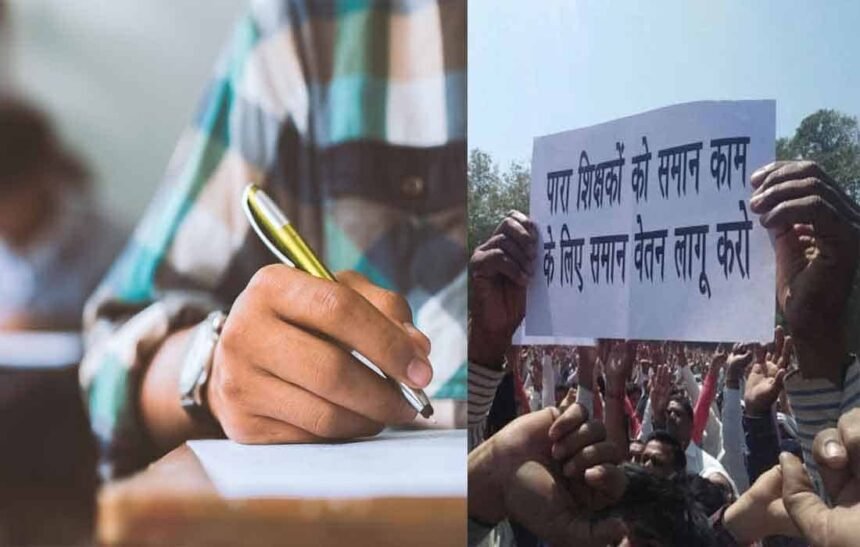 पारा शिक्षकों को समान काम
के लिए समान वेतन लागू करो